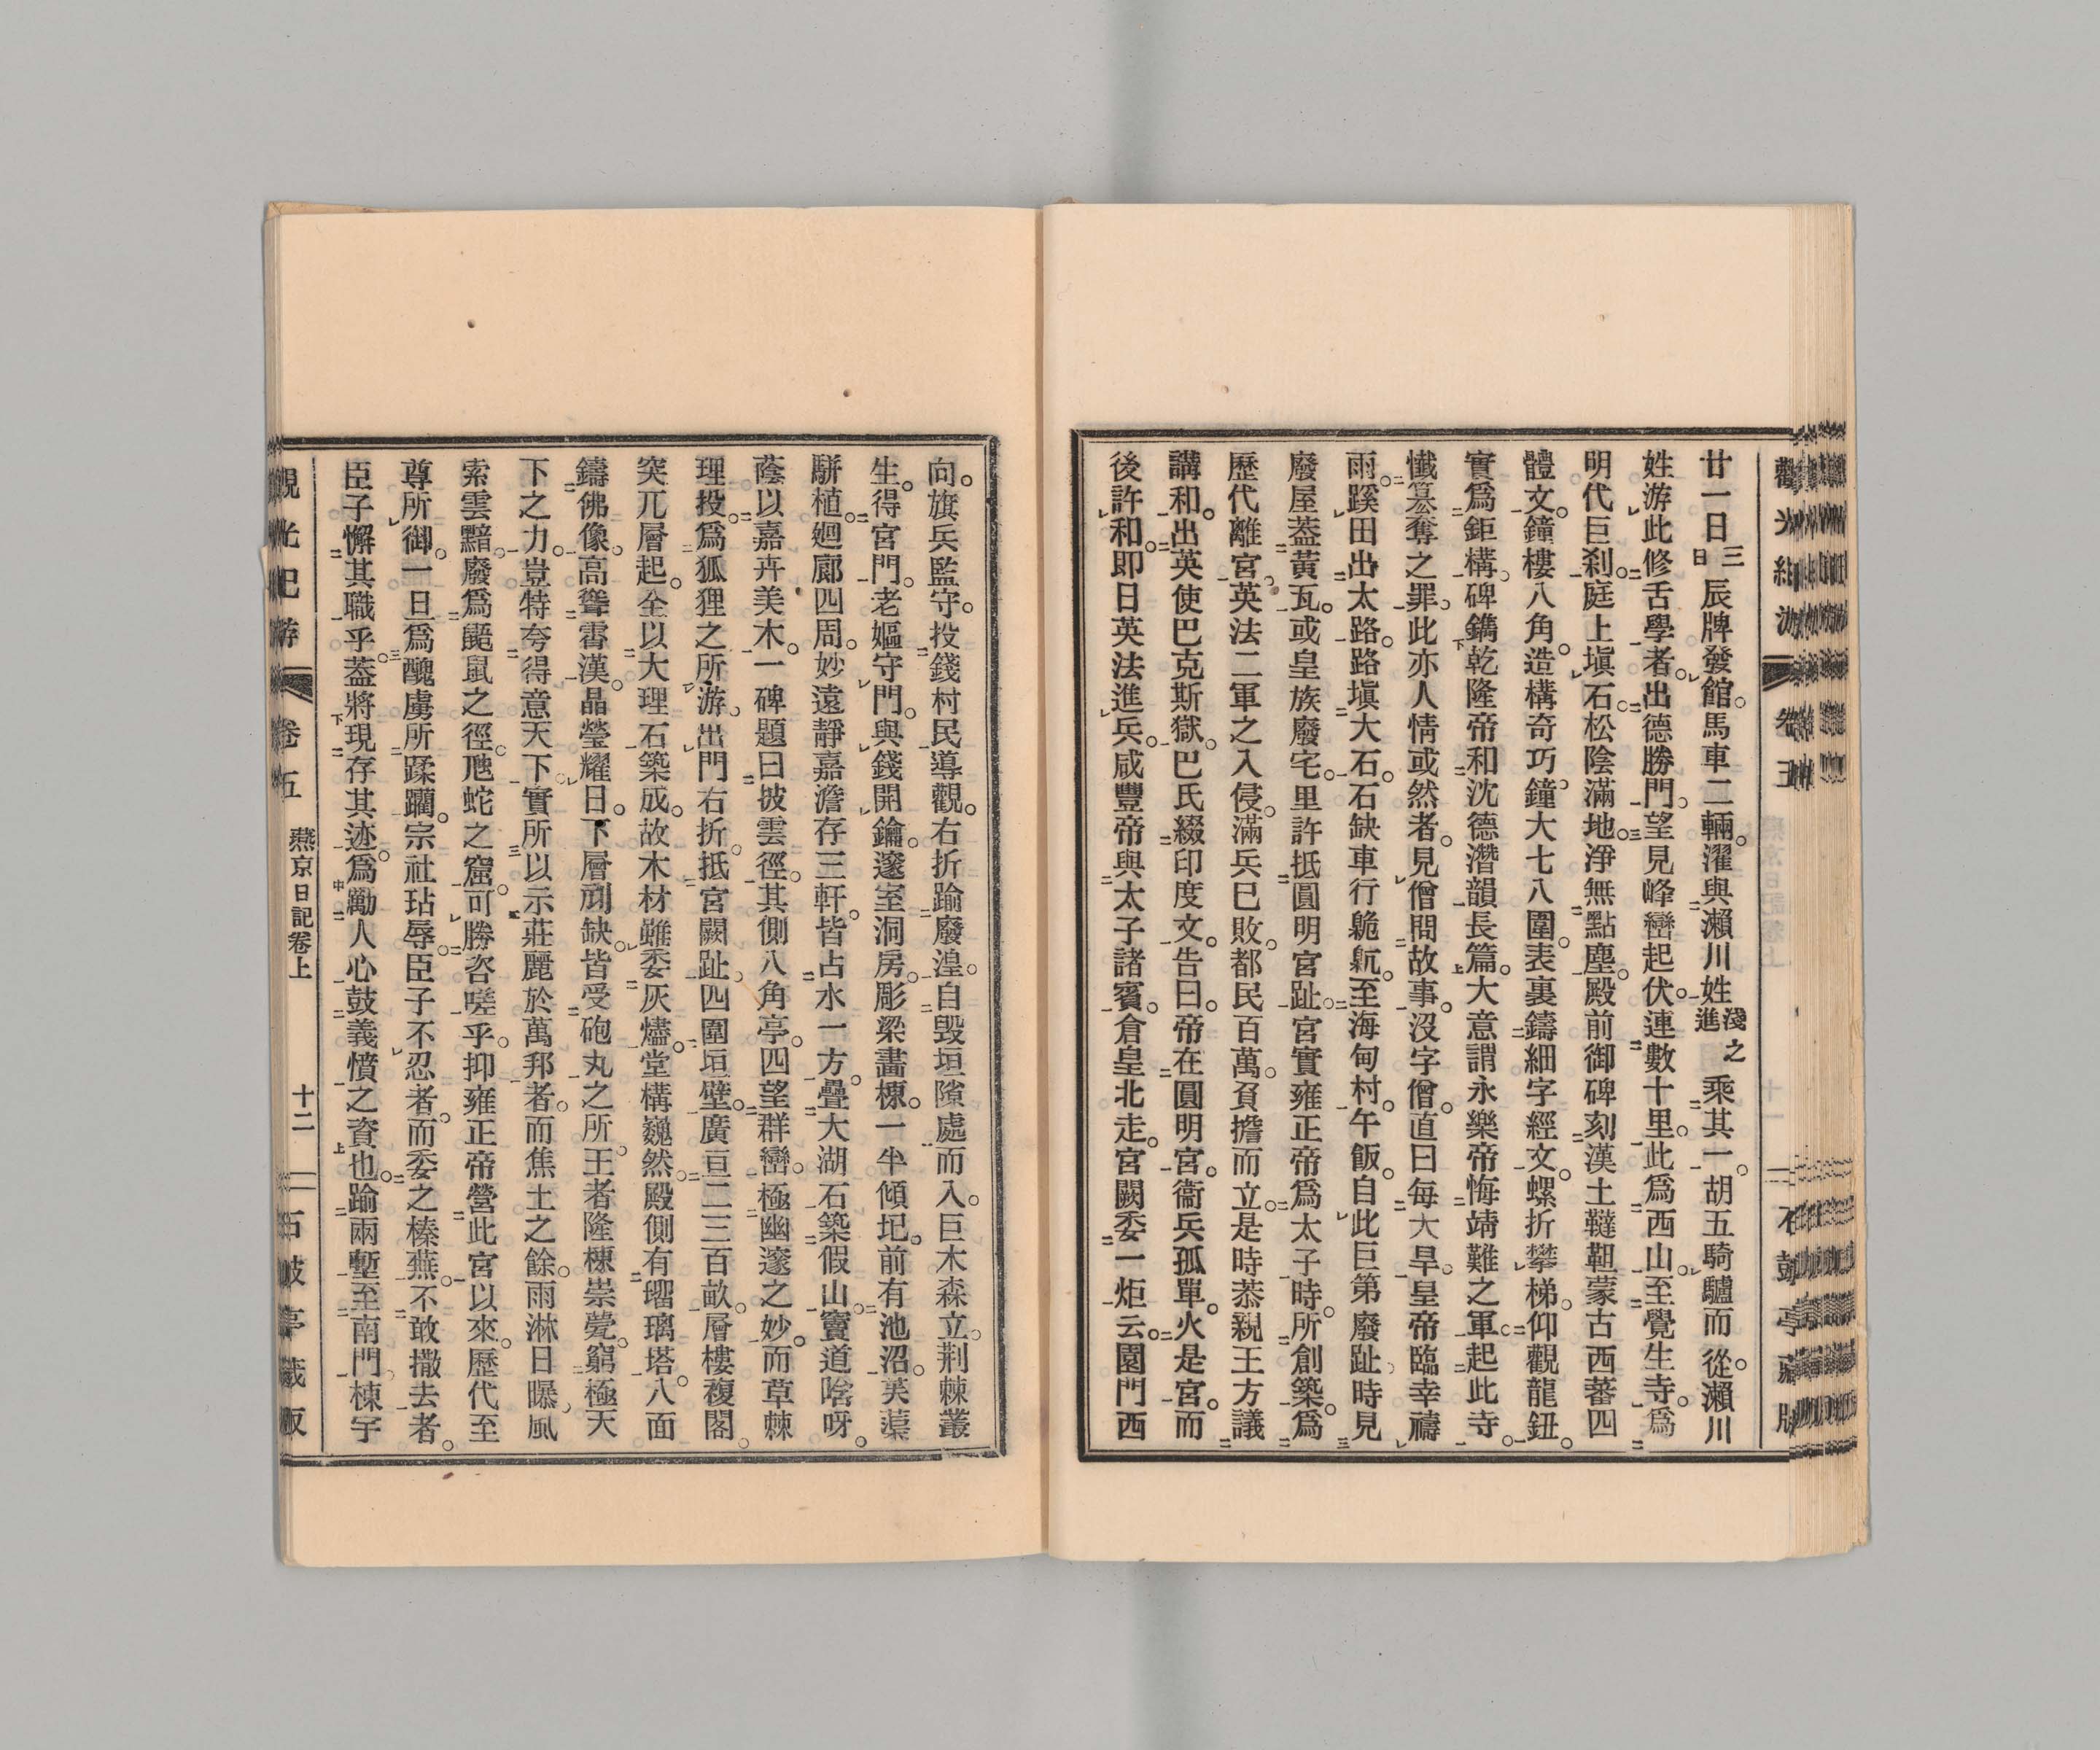 廿一日三日辰牌發館。馬車二輛。濯與瀨川姓淺之進乘其一。胡五騎驢而從。瀨川
姓游此修舌學者。出德勝門。望見峰巒起伏。連數十里。此爲西山。至覺生寺。爲
明代巨刹。庭上塡石。松陰滿地。淨無點塵。殿前御碑刻漢土韃靼蒙古西蕃四
體文。鐘樓八角。造構奇巧。鐘大七八圍。表裏鑄細字經文。螺折攀梯。仰觀龍鈕。
實爲鉅構。碑鐫乾隆帝和沈德潛韻長篇。大意謂永樂帝悔靖難之軍。起此寺。
懺簒奪之罪。此亦人情或然者。見僧問故事。沒字僧。直曰每大旱。皇帝臨幸禱
雨。蹊田出太路。路塡大石。石缺車行臲卼。至海甸村。午飯。自此巨第廢趾。時見
廢屋葢黃瓦。或皇族廢宅。里許抵圓明宮趾。宮實雍正帝爲太子時。所創築。爲
歷代離宮。英法二軍之入侵。滿兵已敗。都民百萬。負擔而立。是時恭親王方議
講和。出英使巴克斯獄。巴氏綴印度文。告曰。帝在圓明宮。衞兵孤單。火是宮。而
後許和。卽日英法進兵。咸豐帝與太子諸賓。倉皇北走。宮闕委一炬云。園門西
向。旗兵監守。投錢村民導觀。右折踰廢湟。自毀垣隙處而入。巨木森立。荆棘叢
生。得宮門。老嫗守門。與錢開鑰。邃室洞房。彫梁畫棟。一半傾圮。前有池沼。芙蕖
駢植。廻廊四周。妙遠靜嘉澹存三軒。皆占水一方。疊大湖石築假山。竇道唅呀。
蔭以嘉卉美木。一碑題曰披雲徑。其側八角亭。四望群巒。極幽邃之妙。而草棘
理投。爲狐狸之所游。出門右折。抵宮闕趾。四圍垣壁。廣亘二三百畝。層樓複閣。
突兀層起。全以大理石築成。故木材雖委灰燼。堂構巍然。殿側有瑠璃塔。八面
鑄佛像。高聳霄漢。晶瑩耀日。下層刓缺。皆受砲丸之所。王者隆棟崇甍。窮極天
下之力。豈特夸得意天下。實所以示莊麗於萬邦者。而焦土之餘。雨淋日曝。風
索雲黯。廢爲鼯鼠之徑。虺蛇之窟。可勝咨嗟乎。抑雍正帝營此宮以來。歷代至
尊所御。一旦爲醜虜所蹂躪。宗社玷辱。臣子不忍者。而委之榛蕪。不敢撒去者。
臣子懈其職乎。葢將現存其迹。爲勵人心鼓義憤之資也。踰兩塹至南門。棟宇
觀光紀游 卷五 燕京日記卷上 十二 石皷亭藏版